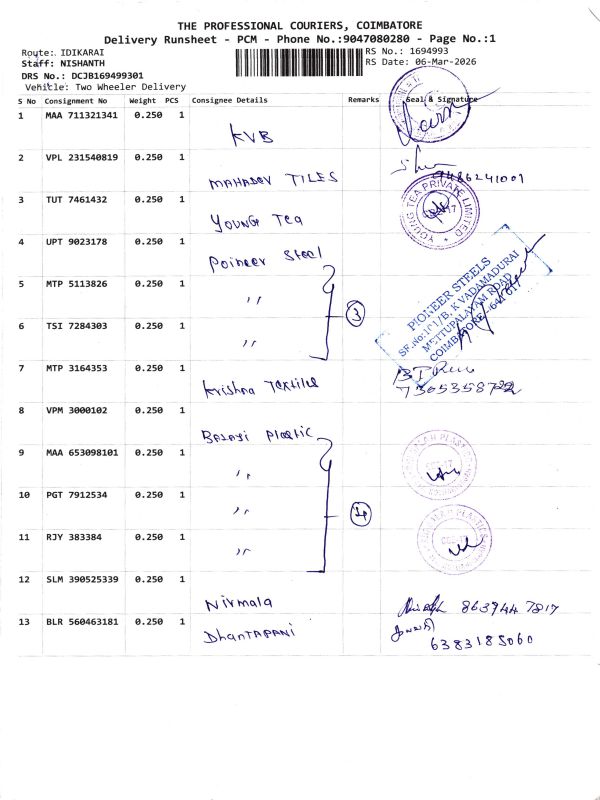 THE PROFESSIONAL COURIERS, COIMBATORE
Delivery Runsheet - PCM - Phone No.:9047080280 - Page No.:1
Route: IDIKARAI
RS No.: 1694993
Staff: NISHANTH
RS Date: 06-Mar-2026
DRS No.: DCJB169499301
Vehicle: Two Wheeler Delivery
S No Consignment No Weight PCS Consignee Details Remarks Seal & Signature
1 MAA 711321341 0.250 1 KVB
2 VPL 231540819 0.250 1 MAHADEV TILES 9486241001
3 TUT 7461432 0.250 1 YOUNG Tea
YOUNG TEA PRIVATE LIMITED
4 UPT 9023178 0.250 1 Poineer Steel
5 MTP 5113826 0.250 1 ,,
6 TSI 7284303 0.250 1 ,,
3
PIONEER STEELS
SF.No:101/B, K VADAMADURAI
METTUPALAYAM ROAD
COIMBATORE-641 017
7 MTP 3164353 0.250 1 Krishna Textiles
7305358722
8 VPM 3000102 0.250 1 Balaji Plastic
9 MAA 653098101 0.250 1 ,,
10 PGT 7912534 0.250 1 ,,
11 RJY 383384 0.250 1 ,,
4
12 SLM 390525339 0.250 1 Nirmala 863944 7817
13 BLR 560463181 0.250 1 DhanTAPANI 6383185060